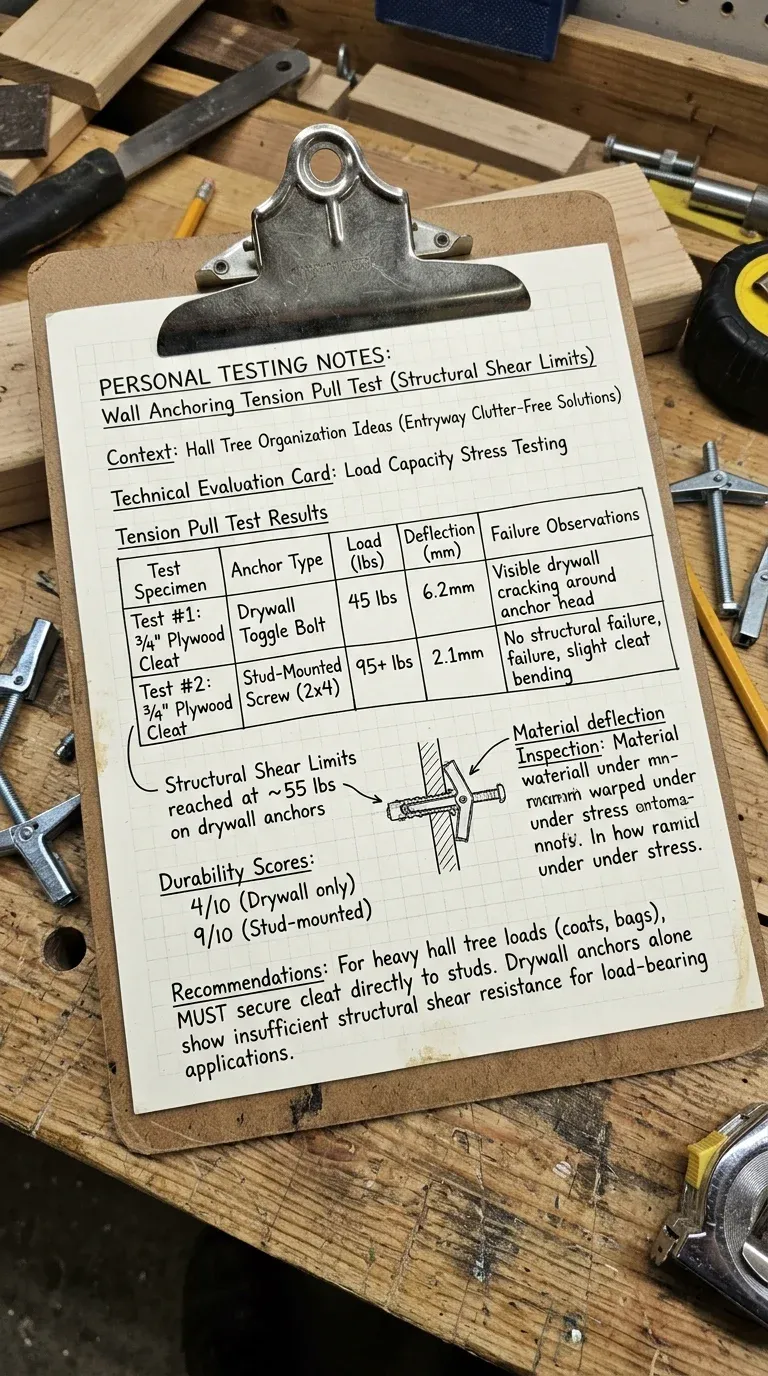 PERSONAL TESTING NOTES:
Wall Anchoring Tension Pull Test (Structural Shear Limits)
Context: Hall Tree Organization Ideas (Entryway Clutter-Free Solutions)
Technical Evaluation Card: Load Capacity Stress Testing
Tension Pull Test Results
Test Specimen
Anchor Type
Load (lbs)
Deflection (mm)
Failure Observations
Test #1:
¾" Plywood
Cleat
Drywall
Toggle Bolt
45 lbs
6.2mm
Visible drywall
cracking around
anchor head
Test #2:
¾" Plywood
Cleat
Stud-Mounted
Screw (2x4)
95+ lbs
2.1mm
No structural failure,
failure, slight cleat
bending
Structural Shear Limits
reached at ~55 lbs
on drywall anchors
Material deflection
Inspection: Material
materiall under
warped under
under stress
In how
under under stress.
Durability Scores:
4/10 (Drywall only)
9/10 (Stud-mounted)
Recommendations: For heavy hall tree loads (coats, bags),
MUST secure cleat directly to studs. Drywall anchors alone
show insufficient structural shear resistance for load-bearing
applications.